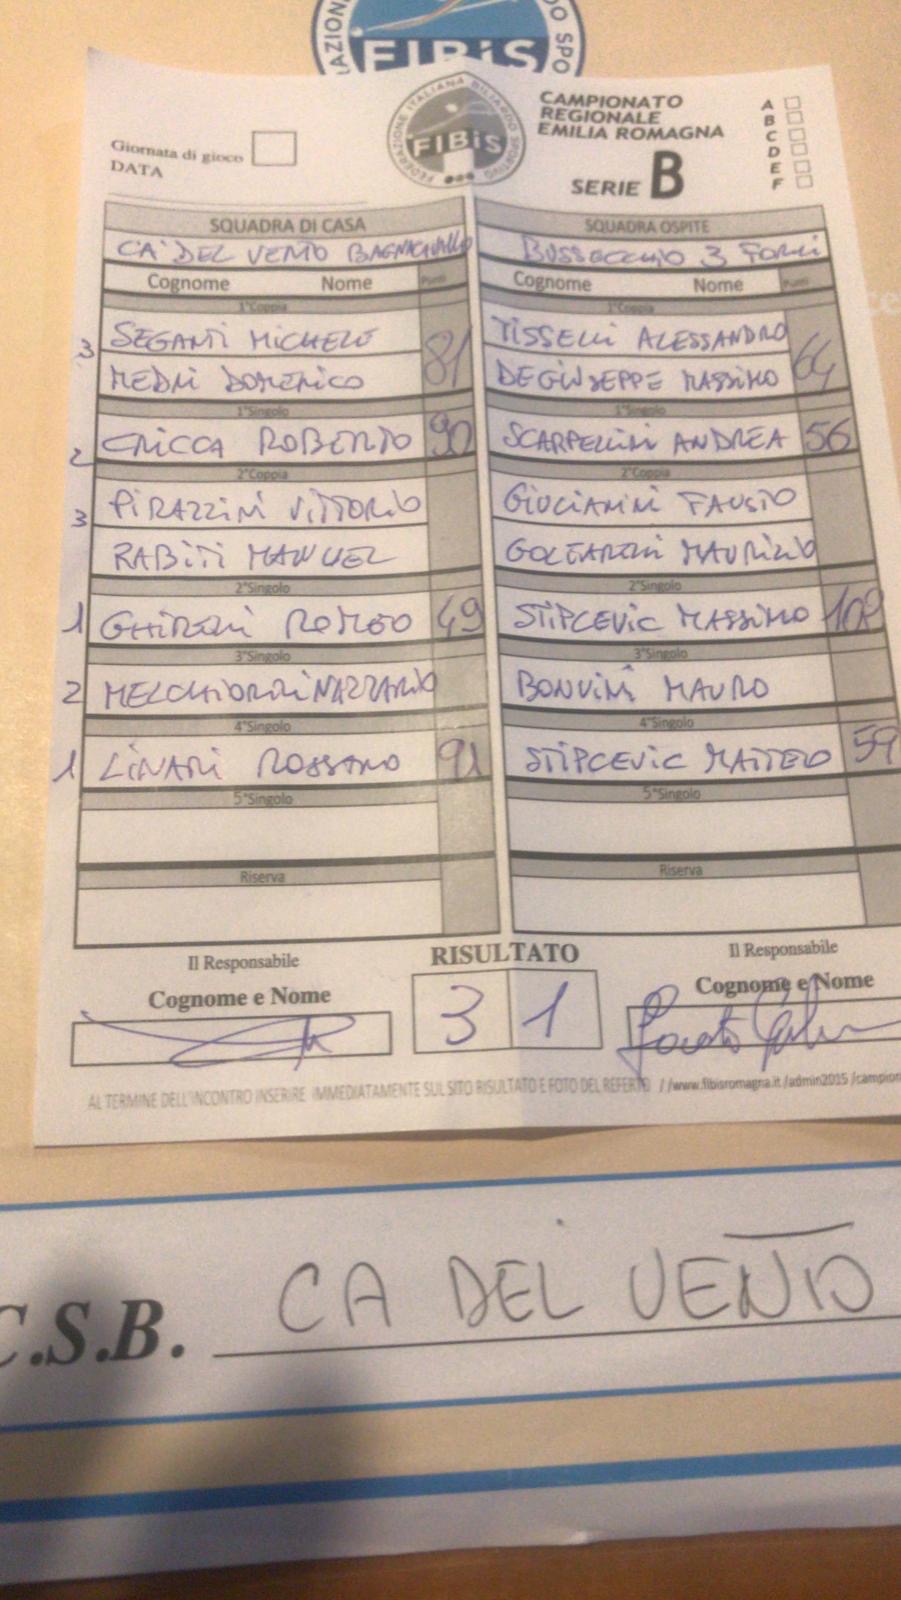 FIBiS
Giornata di gioco
DATA
FEDERAZIONE ITALIANA BILIARDO SPORTIVO
FIBiS
CAMPIONATO
REGIONALE
EMILIA ROMAGNA
SERIE B
A
B
C
D
E
F
SQUADRA DI CASA SQUADRA OSPITE
CA' DEL VENTO BAGNACAVALLO BUSSECCHIO 3 FORLI
Cognome Nome Punti Cognome Nome Punti
1°Coppia 1°Coppia
3 SEGANTI MICHELE 81 TISSELLI ALESSANDRO 64
MEDRI DOMENICO DEGIUSEPPE MASSIMO
1°Singolo 1°Singolo
2 CRICCA ROBERTO 90 SCARPELLINI ANDREA 56
2°Coppia 2°Coppia
3 PIRAZZINI VITTORIO GIULIANINI FAUSTO
RABITI MANUEL GOLFARINI MAURIZIO
2°Singolo 2°Singolo
1 GHIRONI ROMEO 49 STIPCEVIC MASSIMO 102
3°Singolo 3°Singolo
2 MELCHIORRI NAZZARIO BONVINI MAURO
4°Singolo 4°Singolo
1 LINARI ROSSANO 91 STIPCEVIC MATTEO 59
5°Singolo 5°Singolo
Riserva Riserva
Il Responsabile RISULTATO Il Responsabile
Cognome e Nome Cognome e Nome
3 1
AL TERMINE DELL'INCONTRO INSERIRE IMMEDIATAMENTE SUL SITO RISULTATO E FOTO DEL REFERTO //www.fibisromagna.it/admin2015/campion
C.S.B. CA DEL VENTO